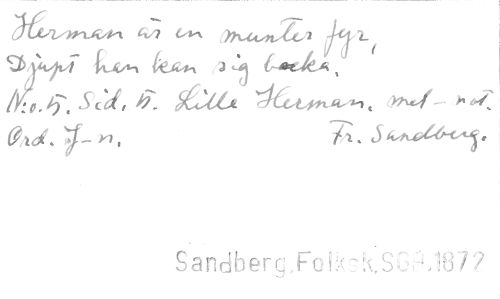 Herman är en munter fyr,
Djupt han kan sig bocka.
N:o. 5. Sid. 5. Lille Herman. mel-not.
Ord. J-n. Fr. Sandberg.
Sandberg. Folksk. SGA. 1872